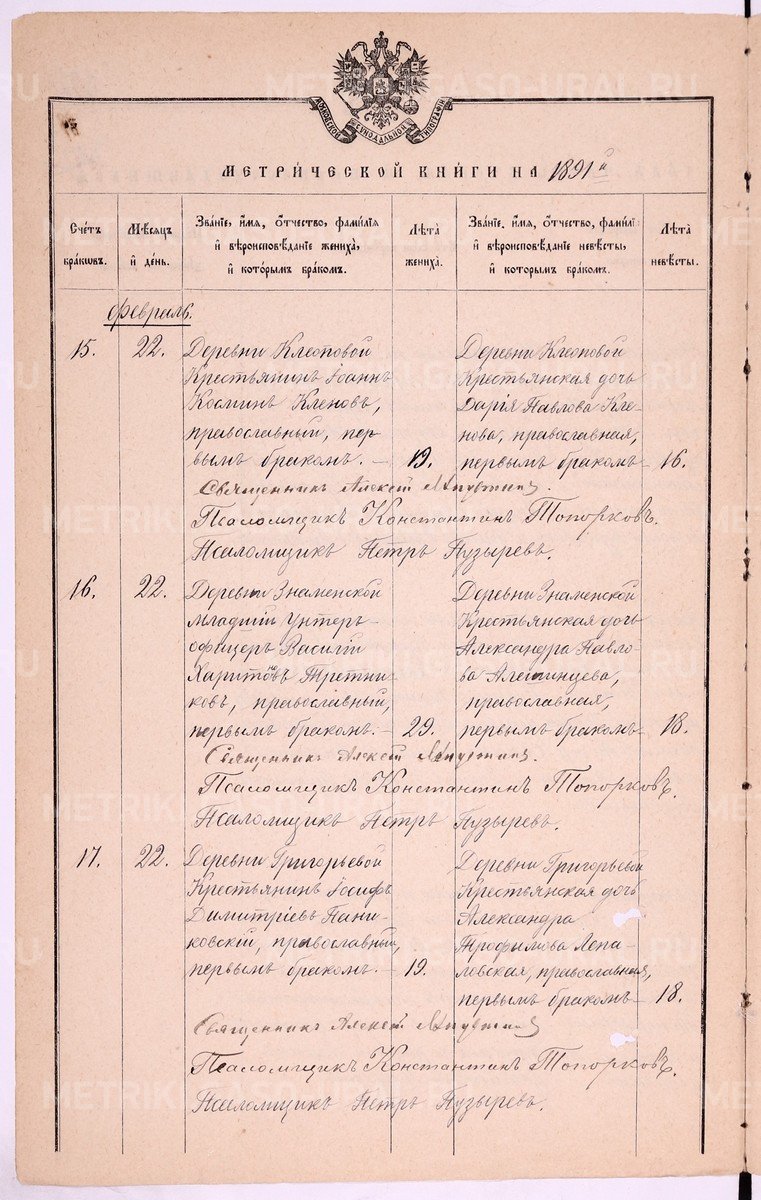 МОСКОВСКОЙ СѴНОДАЛЬНОЙ ТИПОГРАФІИ
МЕТРИ́ЧЕСКОЙ КНИ́ГИ НА 1891 й
Сче́тъ бра́ковъ.
Мѣ́сяцъ и҆ де́нь.
Зва́нїе, и҆́мя, ѻ҆́тчество, фами́лїя и҆ вѣроисповѣ́данїе жениха̀, и҆ кото́рымъ бра́комъ.
Лѣ́та жениха̀.
Зва́нїе, и҆́мя, ѻ҆́тчество, фами́лїя и҆ вѣроисповѣ́данїе невѣ́сты, и҆ кото́рымъ бра́комъ.
Лѣ́та невѣ́сты.
Февраль.
15. 22. Деревни Клеоповой
Крестьянинъ Іоаннъ
Косминъ Кленовъ,
православный, пер-
вымъ бракомъ. — 19.
Деревни Клеоповой
Крестьянская дочь
Дарія Павлова Кле-
нова, православная,
первымъ бракомъ — 16.
Священникъ Алексій
Псаломщикъ Константинъ Топорковъ.
Псаломщикъ Петръ Пузыревъ.
16. 22. Деревни Знаменской
Младшій Унтеръ-
офицеръ Василій
Харитоновъ Третни-
ковъ, православный,
первымъ бракомъ. — 29.
Деревни Знаменской
Крестьянская дочь
Александра Павло-
ва Алешинцева,
православная,
первымъ бракомъ — 18.
Священникъ Алексій
Псаломщикъ Константинъ Топорковъ.
Псаломщикъ Петръ Пузыревъ.
17. 22. Деревни Григорьевой
Крестьянинъ Іосифъ
Димитріевъ Пани-
ковскій, православный,
первымъ бракомъ. — 19.
Деревни Григорьевой
Крестьянская дочь
Александра
Трофимова Лепа-
ловская, православная,
первымъ бракомъ — 18.
Священникъ Алексій
Псаломщикъ Константинъ Топорковъ.
Псаломщикъ Петръ Пузыревъ.
METRIKI.GASO-URAL.RU